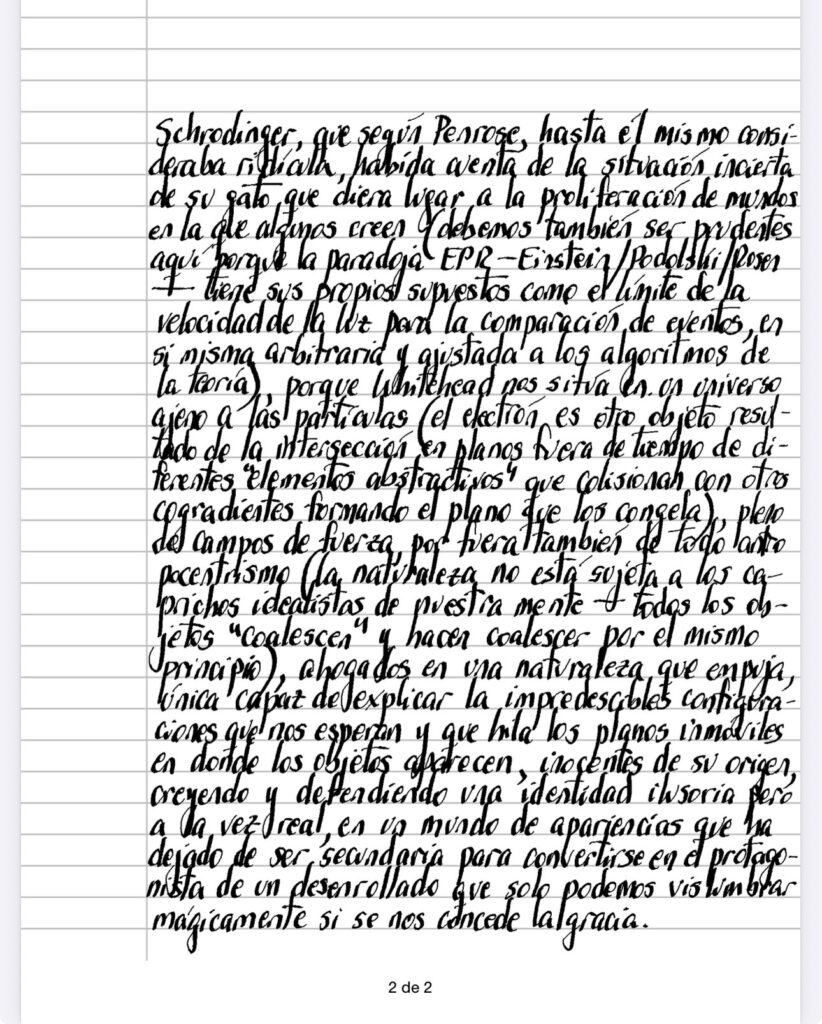 Schrodinger, que según Penrose, hasta él mismo consi-
deraba ridícula, habida cuenta de la situación incierta
de su gato, que diera lugar a la proliferación de mundos
en la que algunos creen (debemos también ser prudentes
aquí porque la paradoja EPR –Einstein/Podolski/Rosen
– tiene sus propios supuestos como el límite de la
velocidad de la luz para la comparación de eventos, en
si misma arbitraria y ajustada a los algoritmos de
la teoría), porque Whitehead nos sitúa en un universo
ajeno a las partículas (el electrón es otro objeto resul-
tado de la intersección en planos fuera de tiempo de di-
ferentes "elementos abstractivos" que colisionan con otros
cogradientes formando el plano que los congela), pleno
de campos de fuerza, por fuera también de todo antro
pocentrismo (la naturaleza no está sujeta a los ca-
prichos idealistas de nuestra mente – todos los ob-
jetos "coalescen" y hacen coalescer por el mismo
principio), ahogados en una naturaleza que empuja,
única capaz de explicar la impredescibles configura-
ciones que nos esperan y que hila los planos inmóviles
en donde los objetos aparecen, inocentes de su origen,
creyendo y defendiendo una identidad ilusoria pero
a la vez real, en un mundo de apariencias que ha
dejado de ser secundaria para convertirse en el protago-
nista de un desenrollado que solo podemos vislumbrar
mágicamente si se nos concede la gracia.
2 de 2